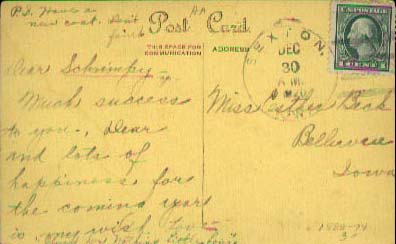 P.S. Have a
new coat. Don't
faint
Post Card
THIS SPACE FOR
COMMUNICATION
ADDRESS
SEXTON
DEC
30
A.M.
IOWA
Dear Schrimpy-
Much success
to you, Dear
and lots of
happiness for
the coming year
is my wish. Love
Miss Esther Beck
Bellevue
Iowa